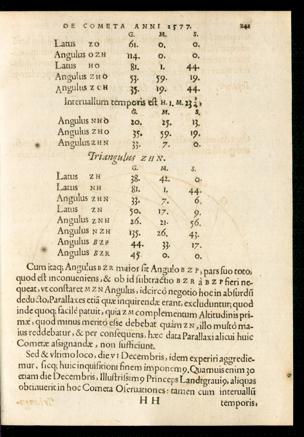 DE COMETA ANNI 1577. 241
G. M. S.
Latus ZO 61. 0. 0.
Angulus OZH 114. 0. 0.
Latus HO 81. 1. 44.
Angulus ZHO 53. 59. 19.
Angulus ZCH 35. 19. 44.
Interuallum temporis est H. 1. M. 23
G. M. S.
Angulus NHO 20. 25. 13.
Angulus ZHO 35. 59. 19.
Angulus ZHN 33. 7. 0.
Triangulus ZHN.
G. M. S.
Latus ZH 38. 42. 0.
Latus NH 81. 1. 44.
Angulus ZHN 33. 7. 6.
Latus ZN 50. 17. 9.
Angulus ZNH 26. 21. 56.
Angulus NZH 135. 26. 43.
Angulus BZP 44. 33. 17.
Angulus BZR 45. 0. 0.
Cum itaq; Angulus BZR maior sit Angulo BZP, pars suo toto,
quod est inconueniens, & ob id subtractio BZR à BZP fieri ne-
queat, vt constaret MZN Angulus, idcirco negotio hoc in absurdũ
deducto, Parallaxes etiã quæ inquirendæ erant, excluduntur, quod
inde quoq; facilè patuit, quia ZM complementum Altitudinis pri-
mæ, quod minus meritò esse debebat quàm ZN, illo multò ma-
ius reddebatur, & per consequens, hæc data Parallaxi alicui huic
Cometæ assignandæ, non sufficiunt.
Sed & vltimo loco, die VI Decembris, idem experiri aggredie-
mur, sicq; huic inquisitioni finem imponemꝰ. Quamuis enim 30
etiam die Decembris, Illustrissimꝰ Princeps Landtgrauiꝰ, aliquas
obtinuerit in hoc Cometa Obseruationes: tamen cum interuallũ
HH temporis,